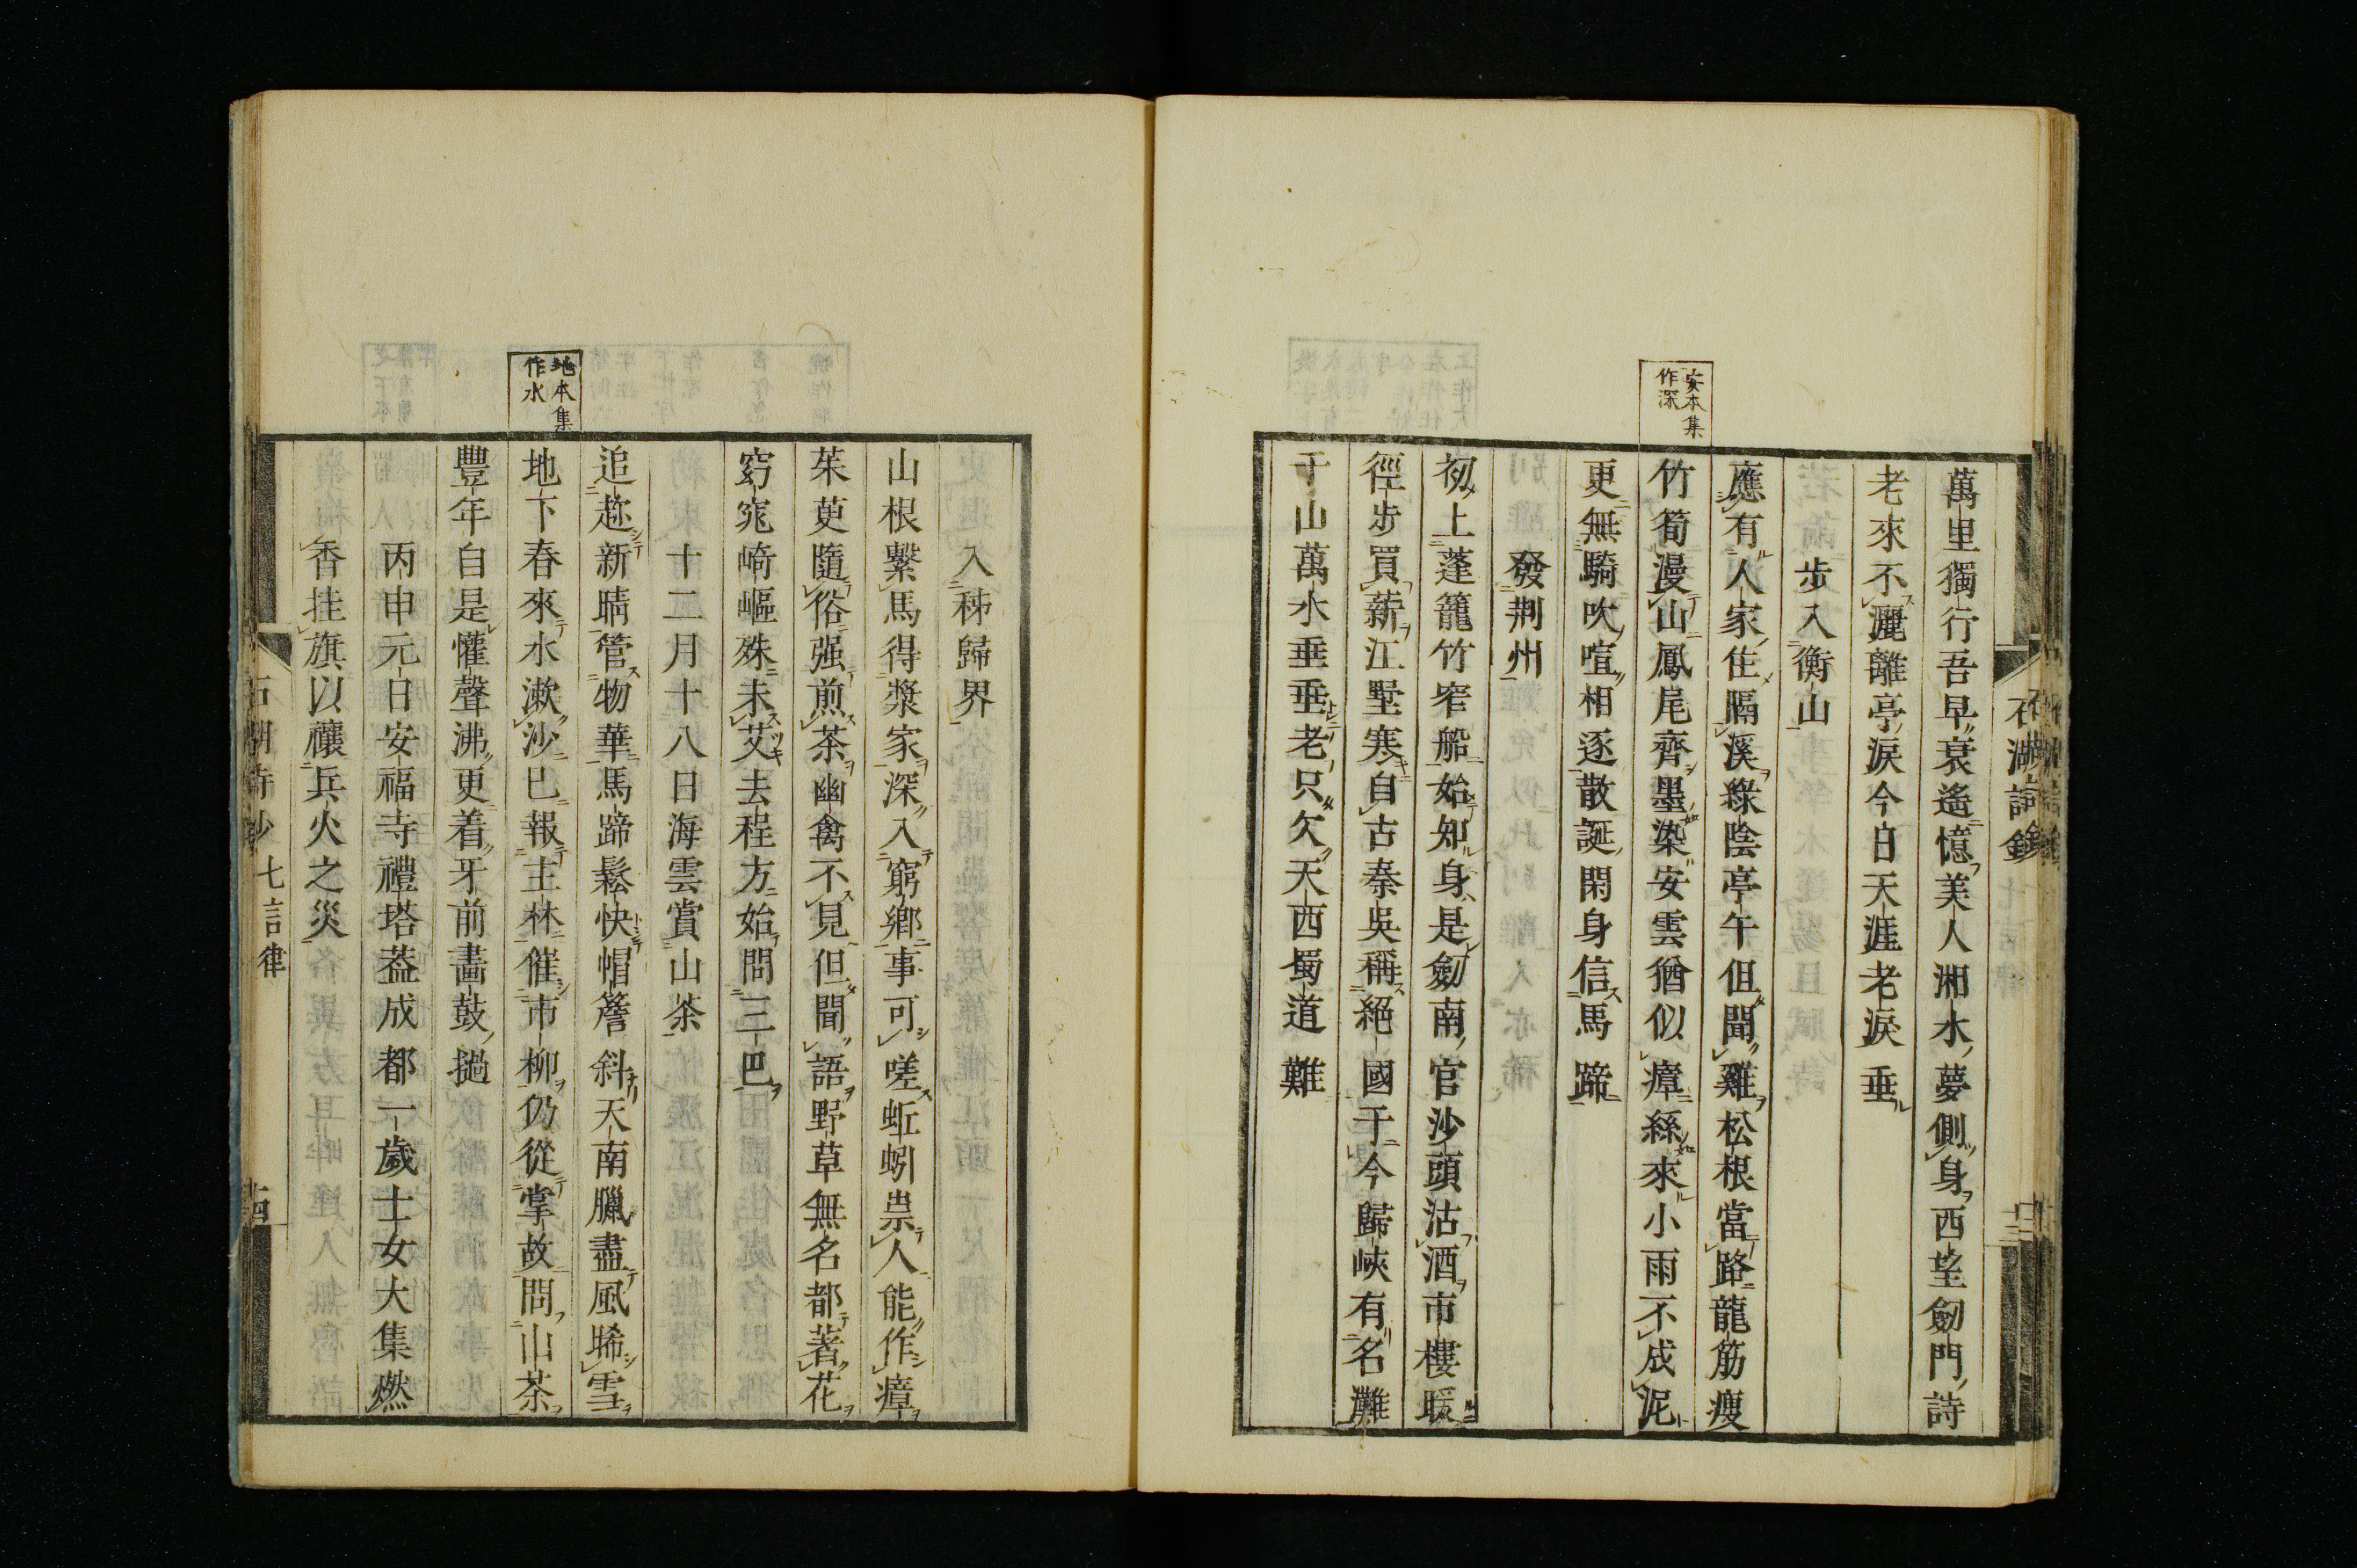 萬里獨行吾早衰遙憶美人湘水夢側身西望劒門詩
老來不灑離亭淚今日天涯老淚垂
步入衡山
安本集
作深
應有人家住隔溪綠陰亭午但聞雞松根當路龍筋瘦
竹筍漫山鳳尾齊墨染安雲猶似瘴絲來小雨不成泥
更無騎吹喧相逐散誕閑身信馬蹄
發荆州
初上蓬籠竹笮船始知身是劒南官沙頭沽酒市樓暖
徑步買薪江墅寒自古秦吳稱絕國于今歸峽有名灘
千山萬水垂垂老只欠天西蜀道難
入秭歸界
山根繫馬得漿家深入窮鄉事可嗟蚯蚓祟人能作瘴
茱萸隨俗强煎茶幽禽不見但聞語野草無名都著花
窈窕崎嶇殊未艾去程方始問三巴
十二月十八日海雲賞山茶
追趂新晴管物華馬蹄鬆快帽簷斜天南臘盡風晞雪
地本集
作水
地下春來水漱沙已報主林催市柳仍從掌故問山茶
豐年自是懽聲沸更着牙前畵鼓撾
丙申元日安福寺禮塔葢成都一歲士女大集燃
香挂旗以禳兵火之災
七言律